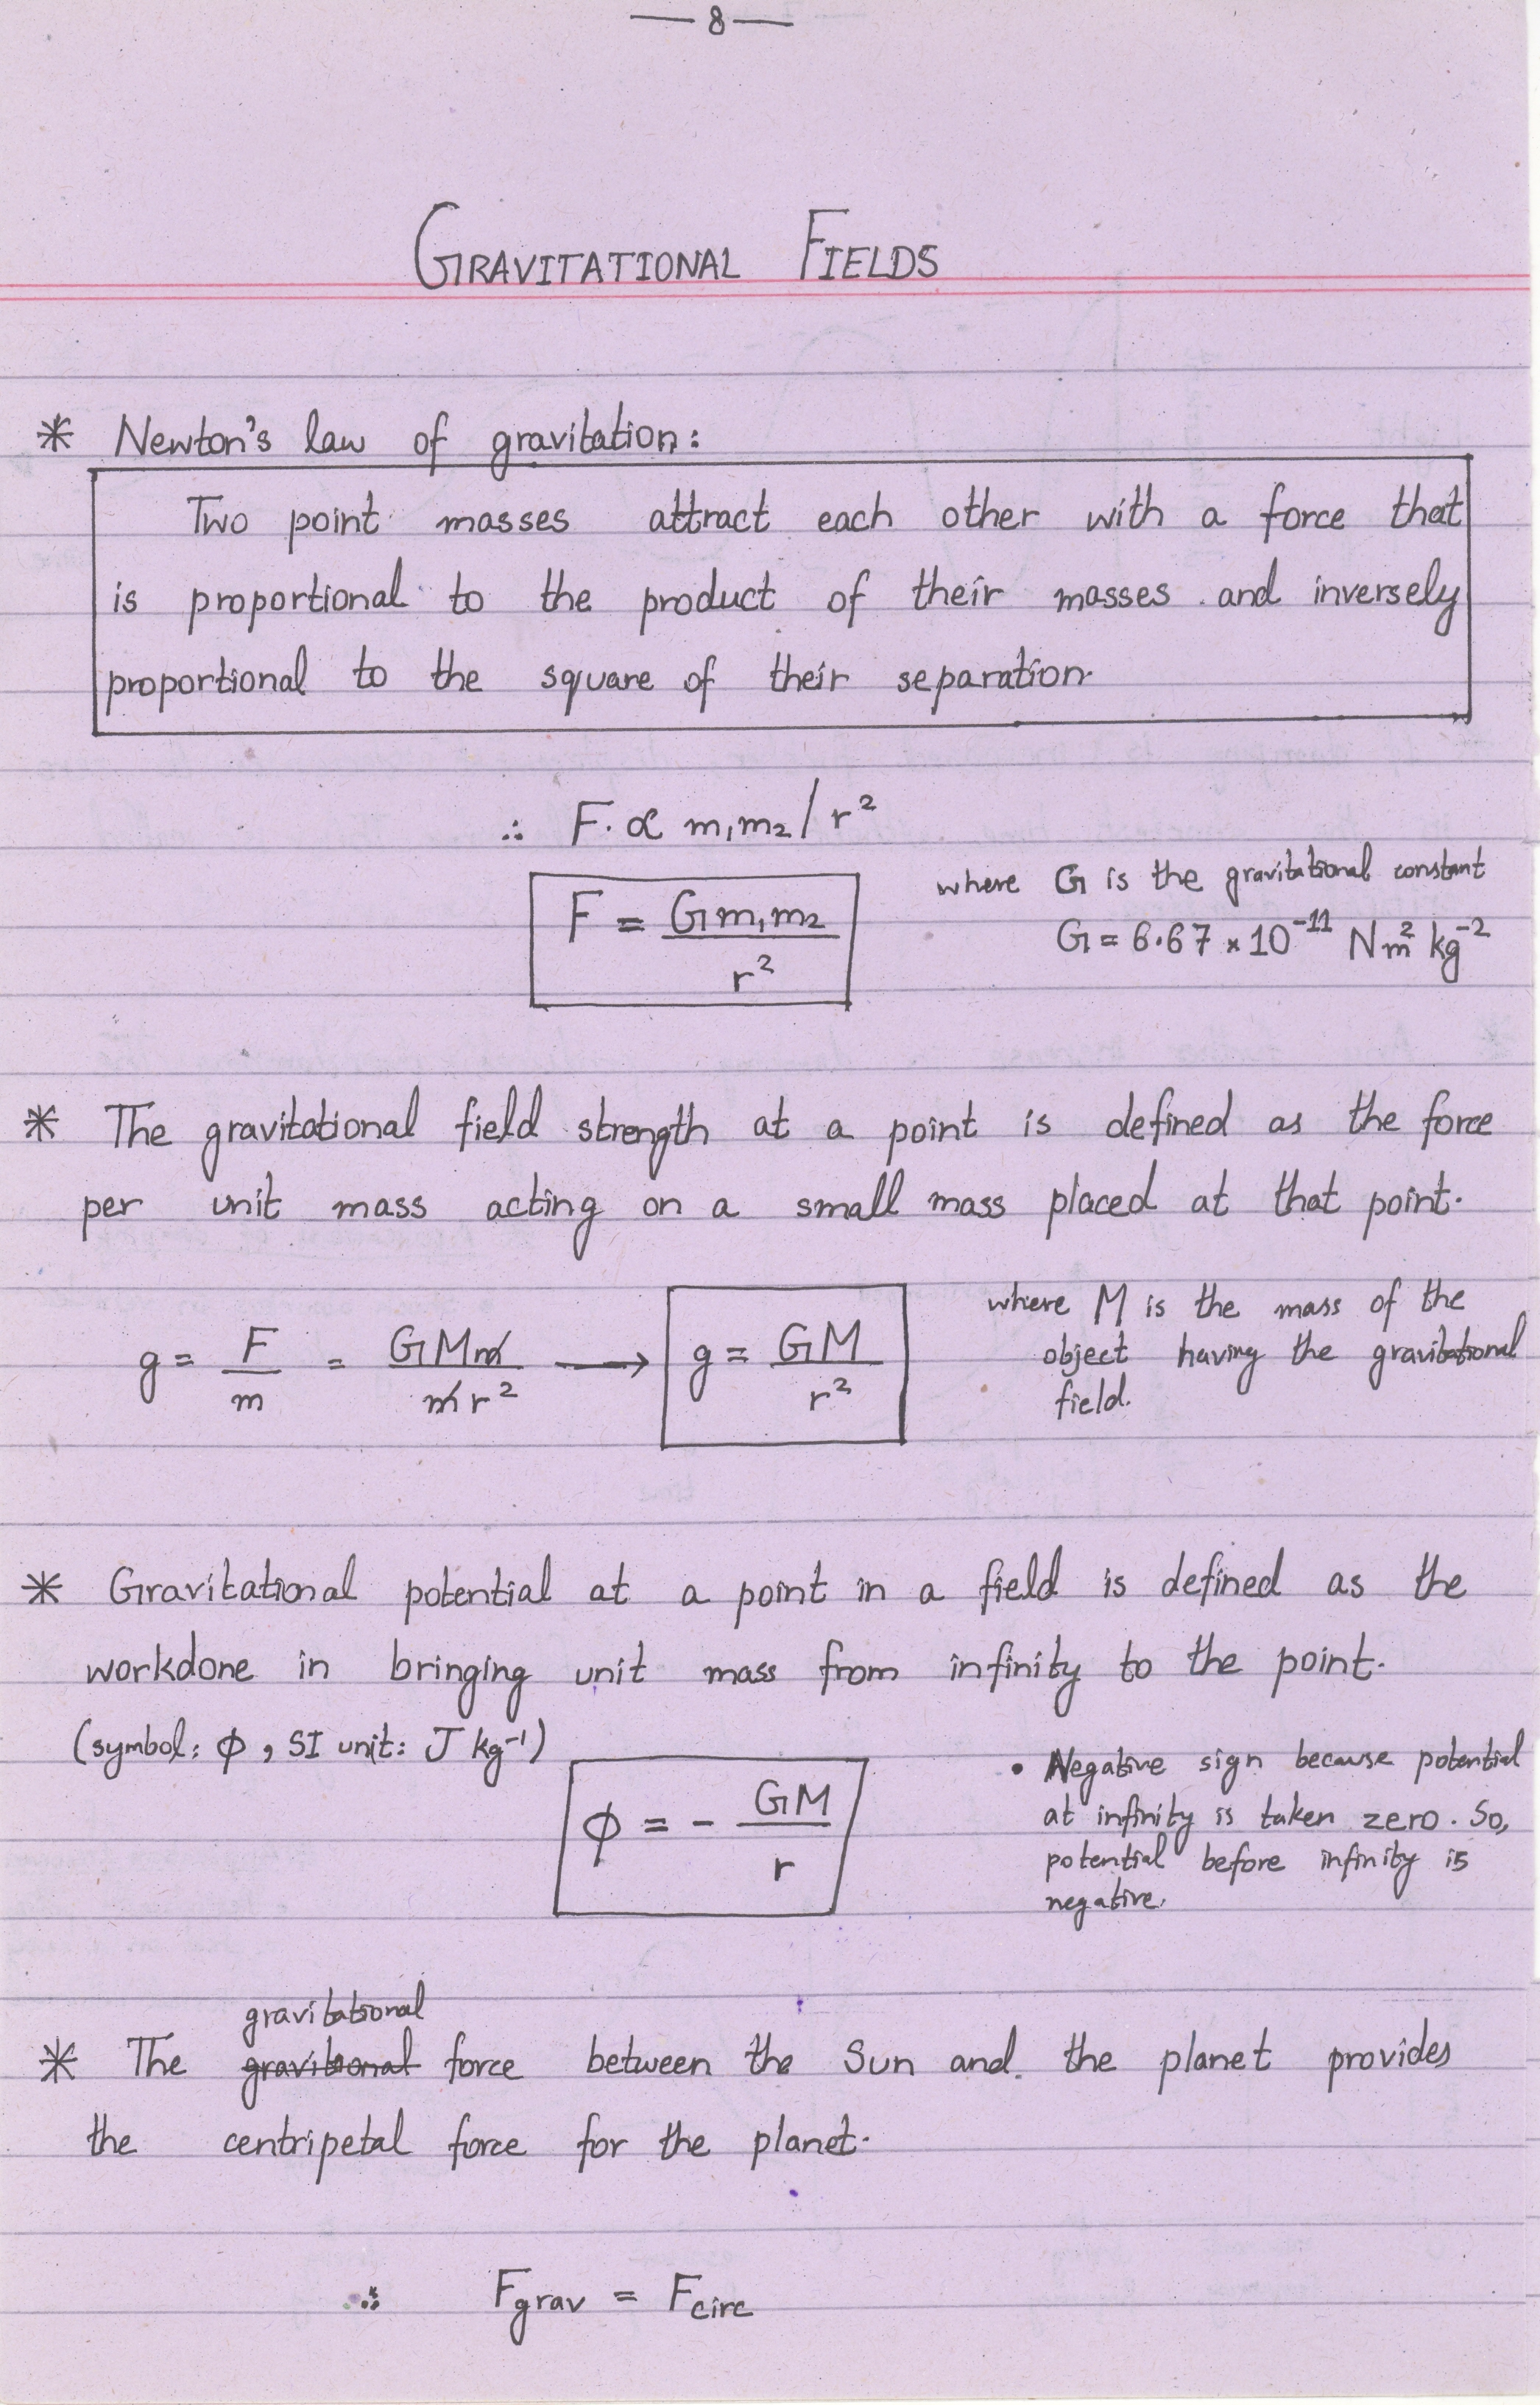 — 8 —
GRAVITATIONAL FIELDS
* Newton's law of gravitation:
Two point masses attract each other with a force that
is proportional to the product of their masses and inversely
proportional to the square of their separation.
∴ F ∝ m₁m₂ / r²
F = Gm₁m₂ / r²
where G is the gravitational constant
G = 6.67 × 10⁻¹¹ N m² kg⁻²
* The gravitational field strength at a point is defined as the force
per unit mass acting on a small mass placed at that point.
g = F/m = GMm/mr² → g = GM/r²
where M is the mass of the
object having the gravitational
field.
* Gravitational potential at a point in a field is defined as the
workdone in bringing unit mass from infinity to the point.
(symbol: ϕ, SI unit: J kg⁻¹)
ϕ = - GM/r
• Negative sign because potential
at infinity is taken zero. So,
potential before infinity is
negative.
gravitational
* The gravitional force between the Sun and the planet provides
the centripetal force for the planet.
∴ Fgrav = Fcirc